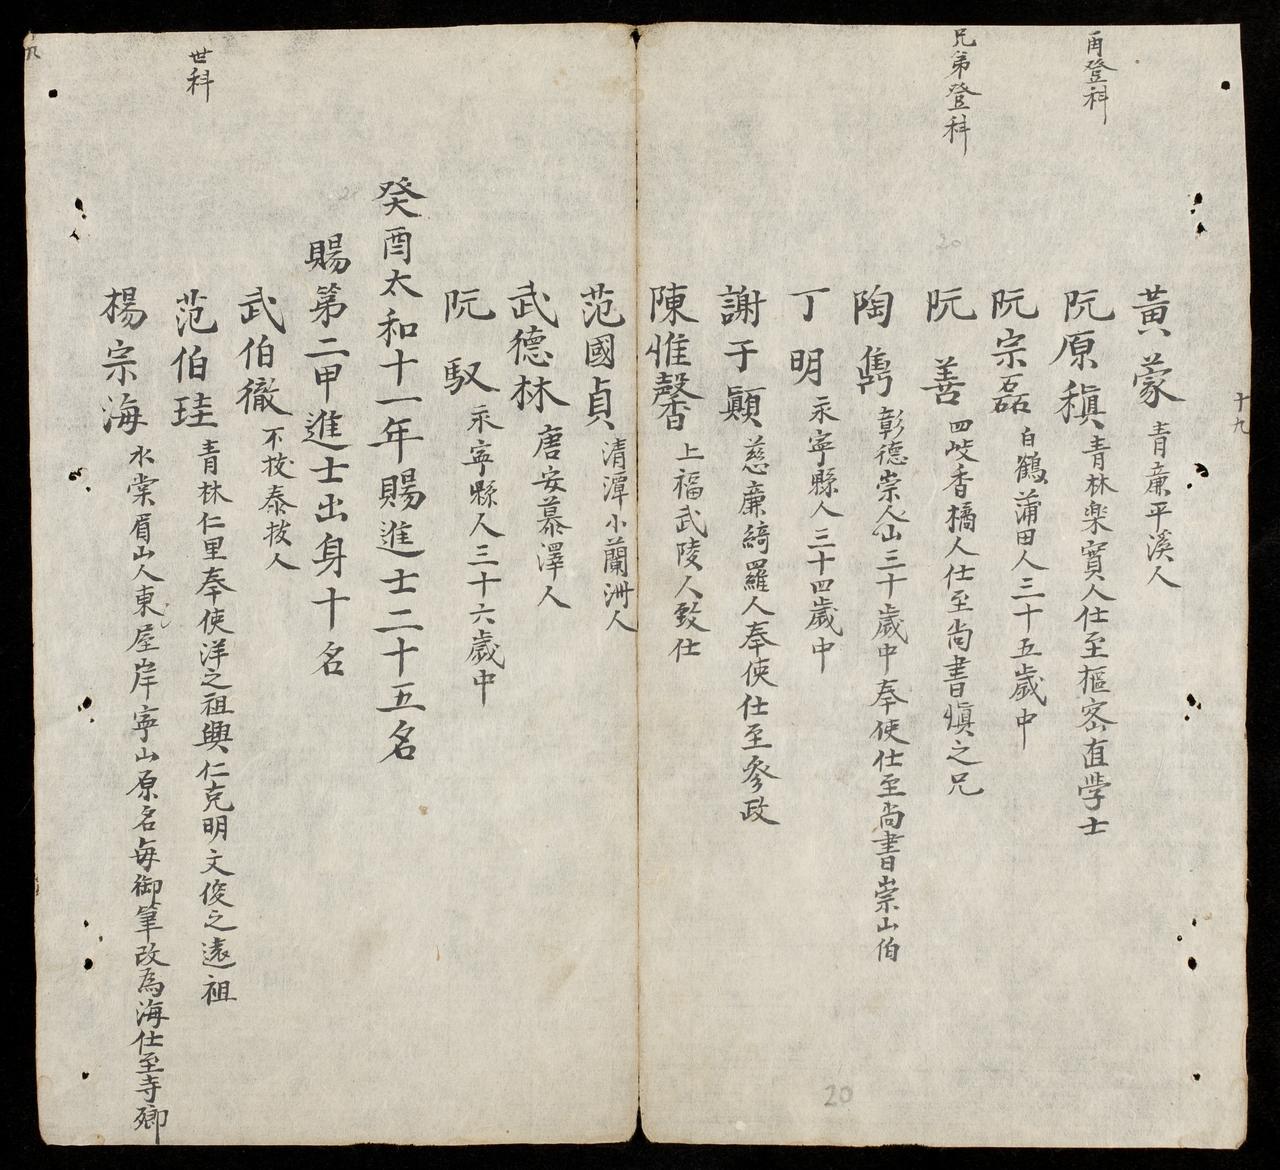 十九
黃蒙 青亷平溪人
再登科
阮原稹 青林樂實人仕至樞密直學士
阮宗磊 白鶴蒲田人三十五歲中
兄弟登科
阮善 四岐香橘人仕至尚書愼之兄
陶雋 彰德崇山人三十歲中奉使仕至尚書崇山伯
丁明 永寧縣人三十四歲中
謝子顚 慈廉綺羅人奉使仕至參政
陳惟馨 上福武陵人致仕
范國貞 清潭小蘭洲人
武德林 唐安慕澤人
阮馭 永寧縣人三十六歲中
癸酉太和十一年賜進士二十五名
賜第二甲進士出身十名
武伯徹 不拔泰拔人
世科
范伯珪 青林仁里奉使洋之祖興仁克明文俊之遠祖
楊宗海 水棠眉山人東屋岸寧山原名每御筆改爲海仕至寺卿
20